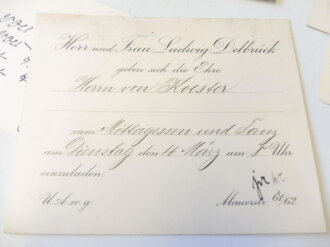 Herr und Frau Ludwig Delbrück
geben sich die Ehre
Herrn von Koester
zum Mittagessen und Tanz
am Dienstag den 4 März um 5 Uhr
einzuladen.
U. A. w. g.
Mauerstr. 61/62